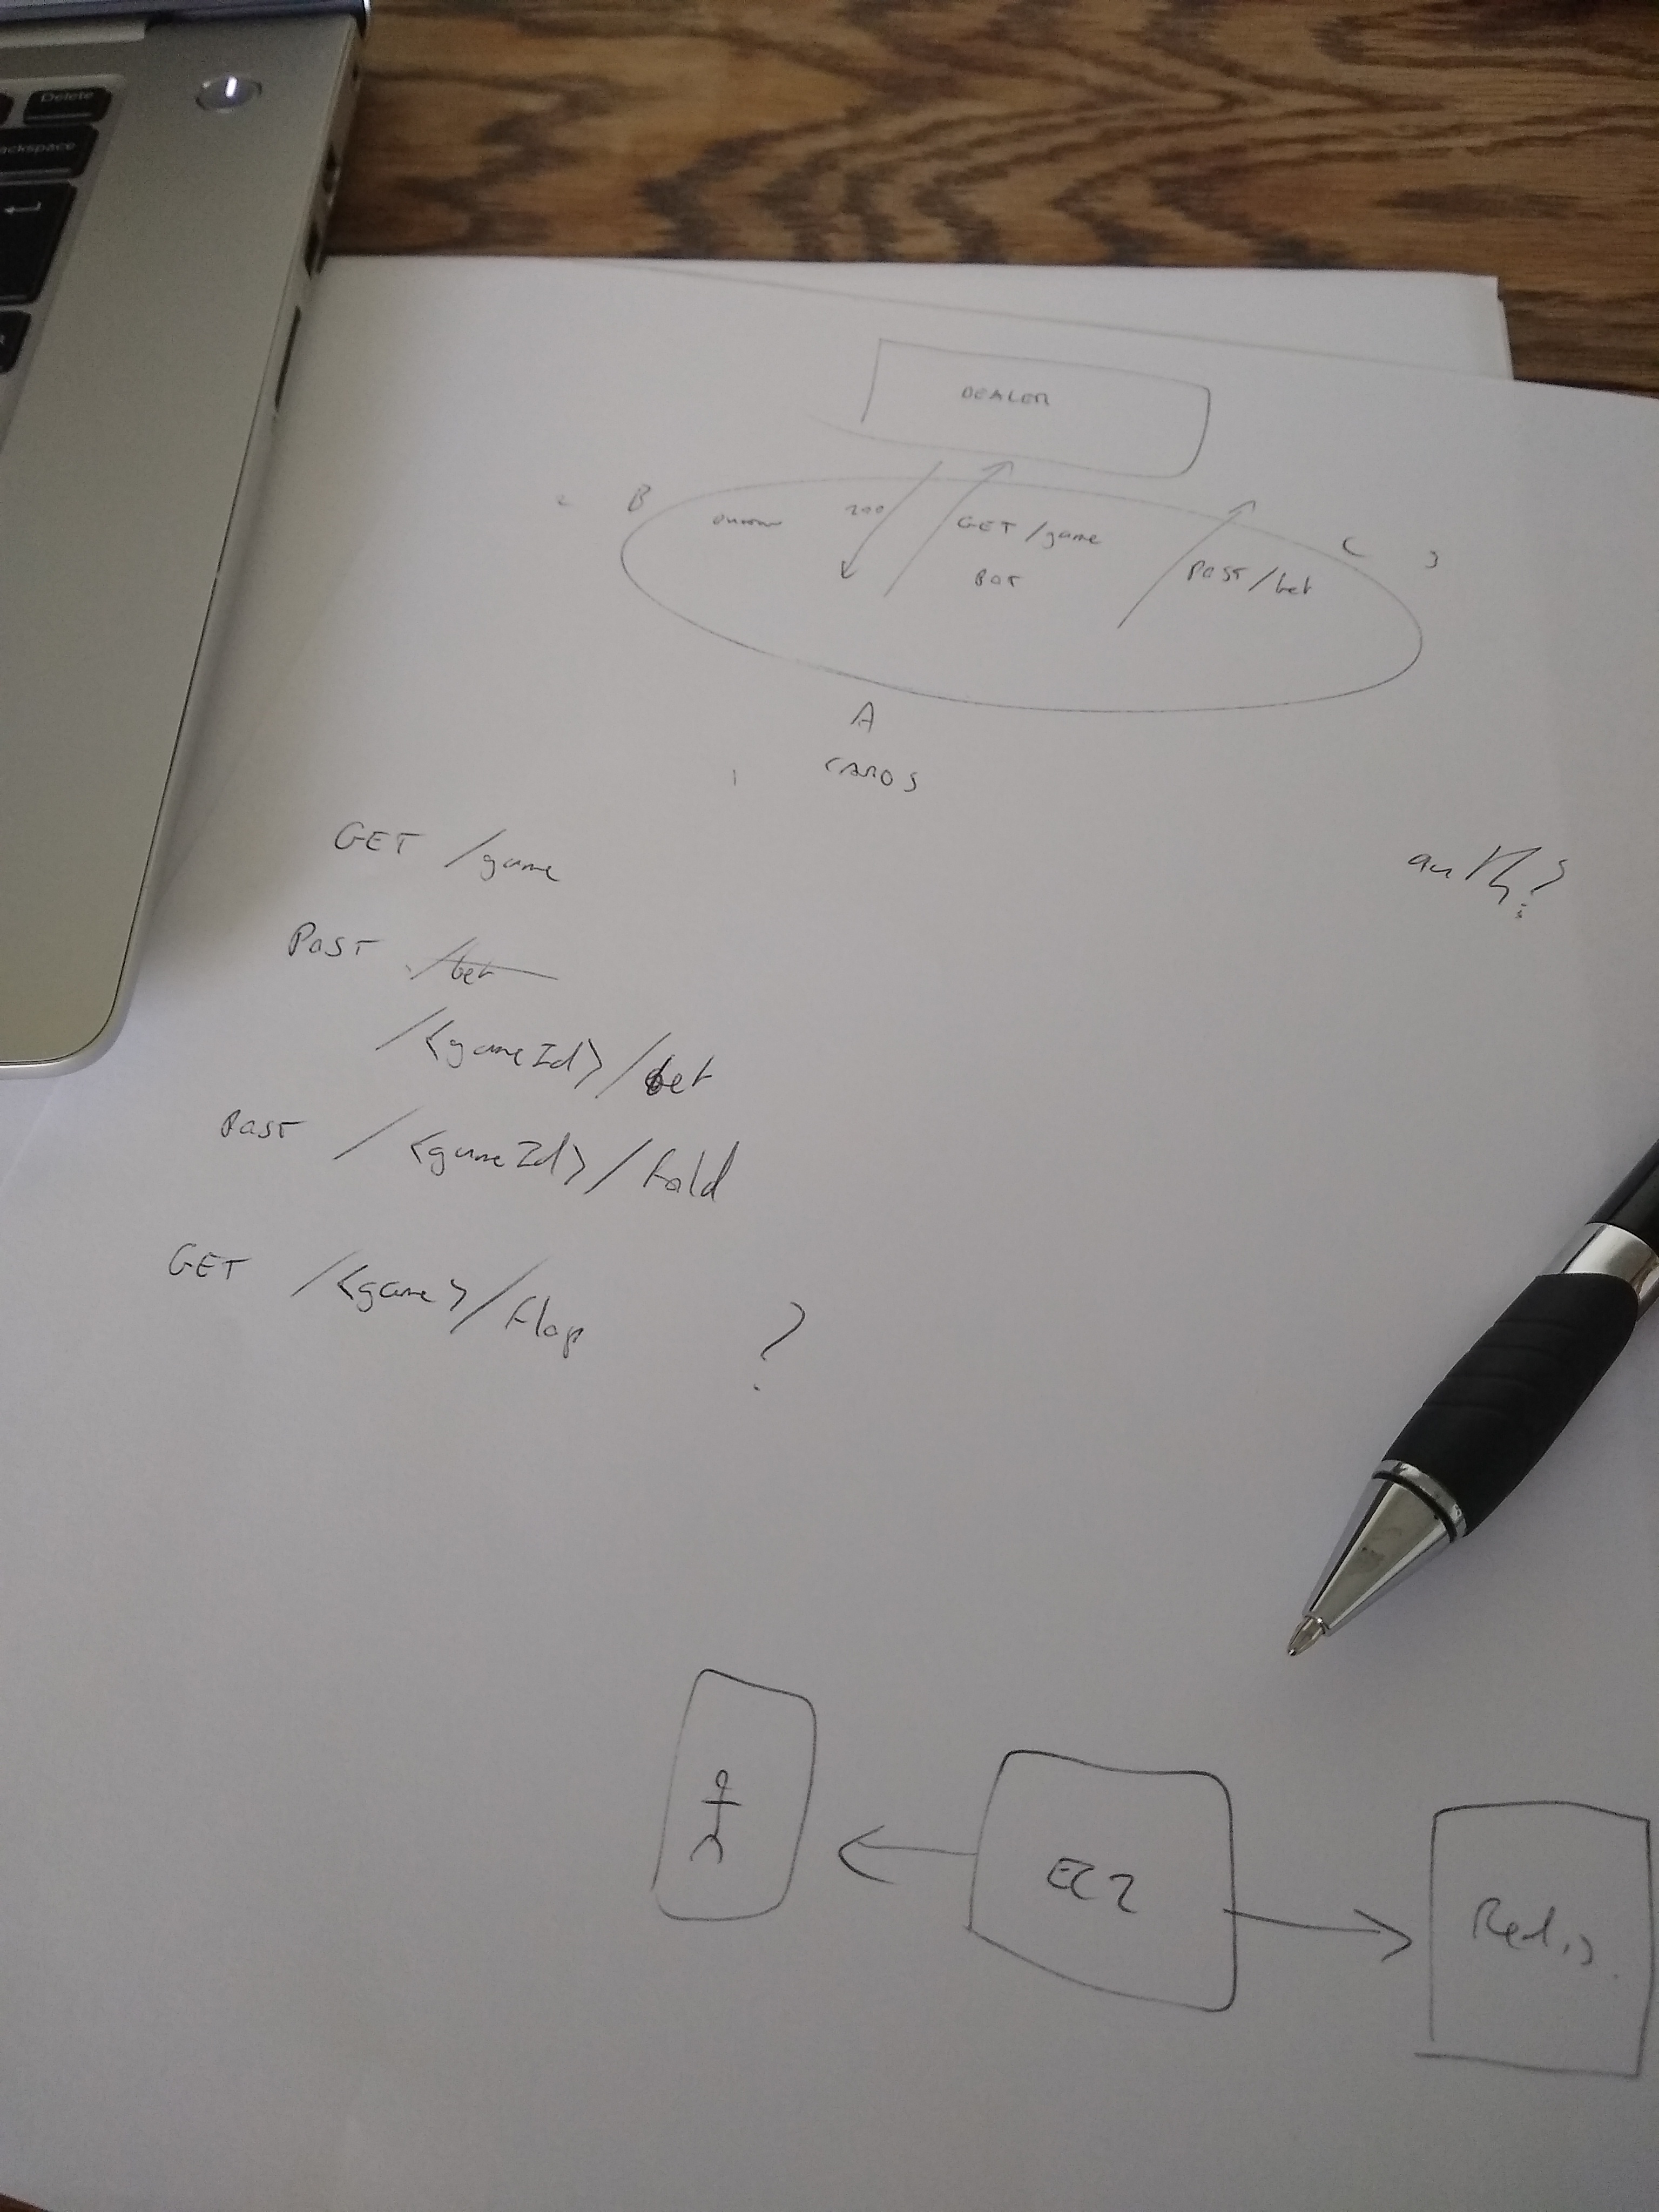 Delete
ackspace
DEALER
2 B 200 GET /game C 3
BOT POST /bet
A
1 CARDS
GET /game
auth?
POST /bet
/<gameId>/bet
POST /<gameId>/fold
GET /<game>/flop ?
EC2
Redis